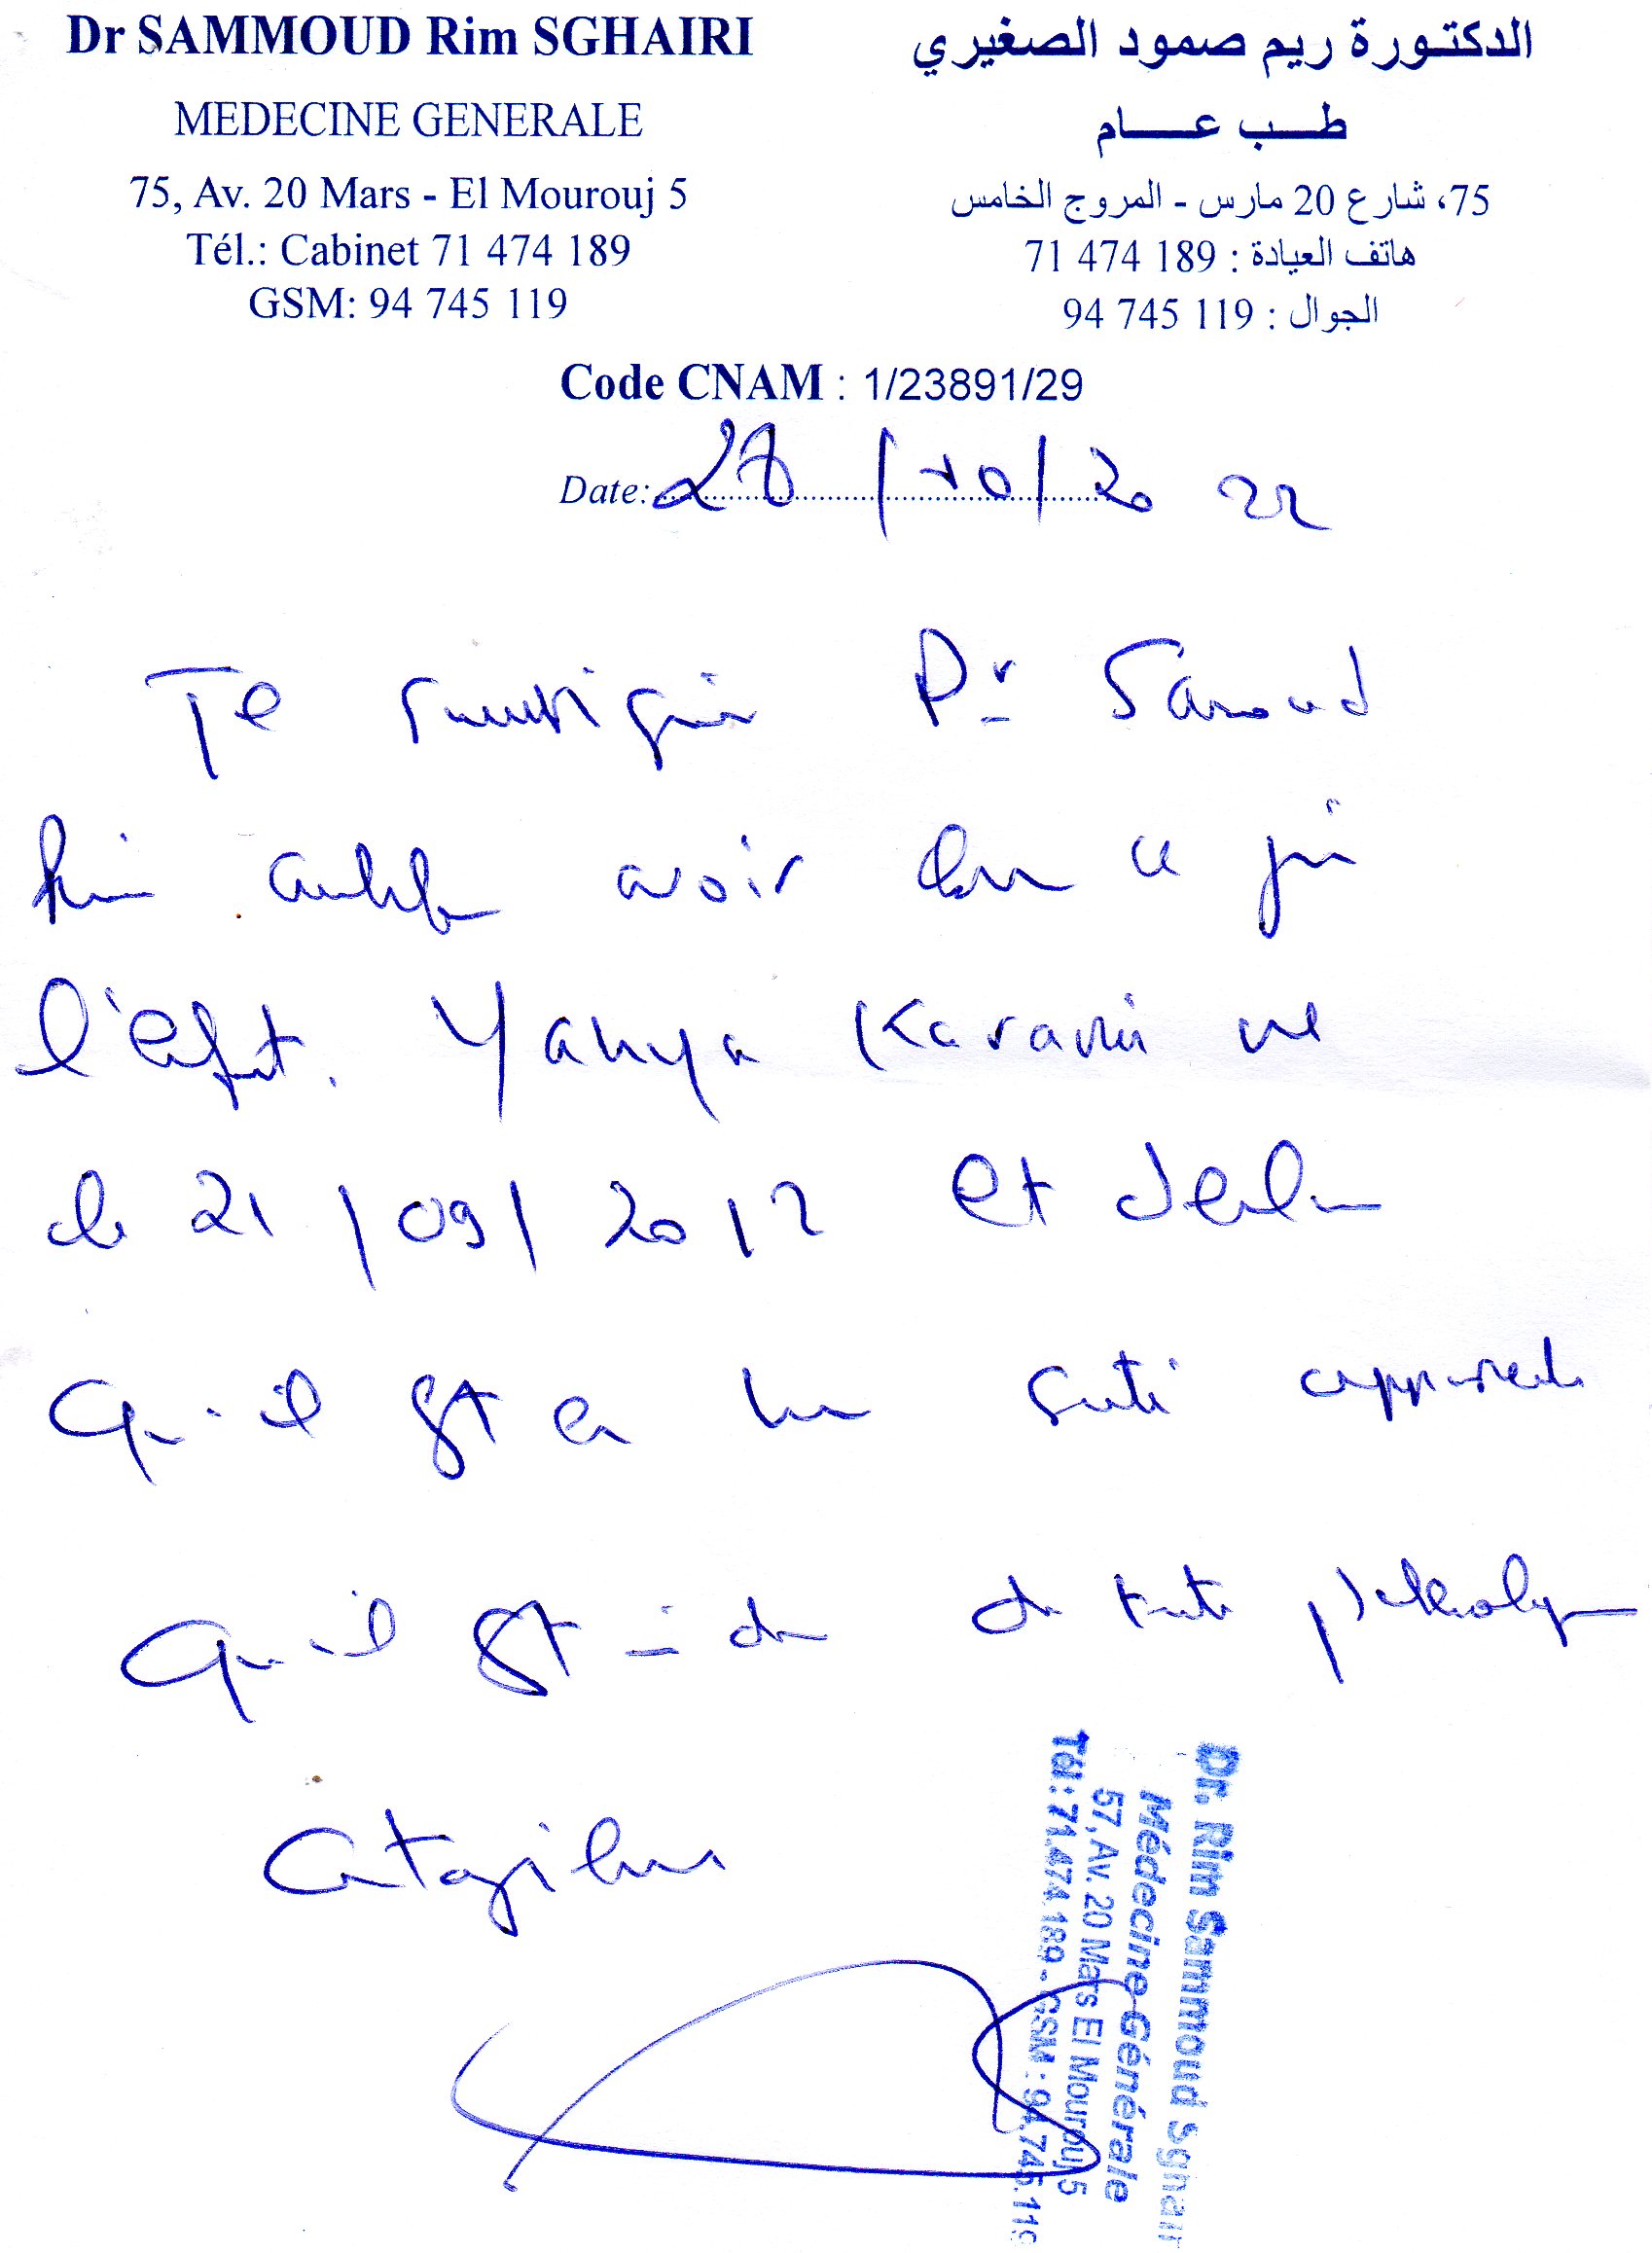 Dr SAMMOUD Rim SGHAIRI
MEDECINE GENERALE
75, Av. 20 Mars - El Mourouj 5
Tél.: Cabinet 71 474 189
GSM: 94 745 119
الدكتورة ريم صمود الصغيري
طب عام
75، شارع 20 مارس - المروج الخامس
هاتف العيادة : 189 474 71
الجوال : 119 745 94
Code CNAM : 1/23891/29
Date: 28/10/2022
Je Dr
avoir ce
l'enfant Yahya né
le 21/09/2012 et déclare
Qu'il est en santé apparente
Qu'il est de toute pathologie
Contagieuse
Dr. Rim Sammoud Sghairi
Médecine Générale
57, Av. 20 Mars El Mourouj 5
Tél : 71.474.189 - GSM : 94.745.119